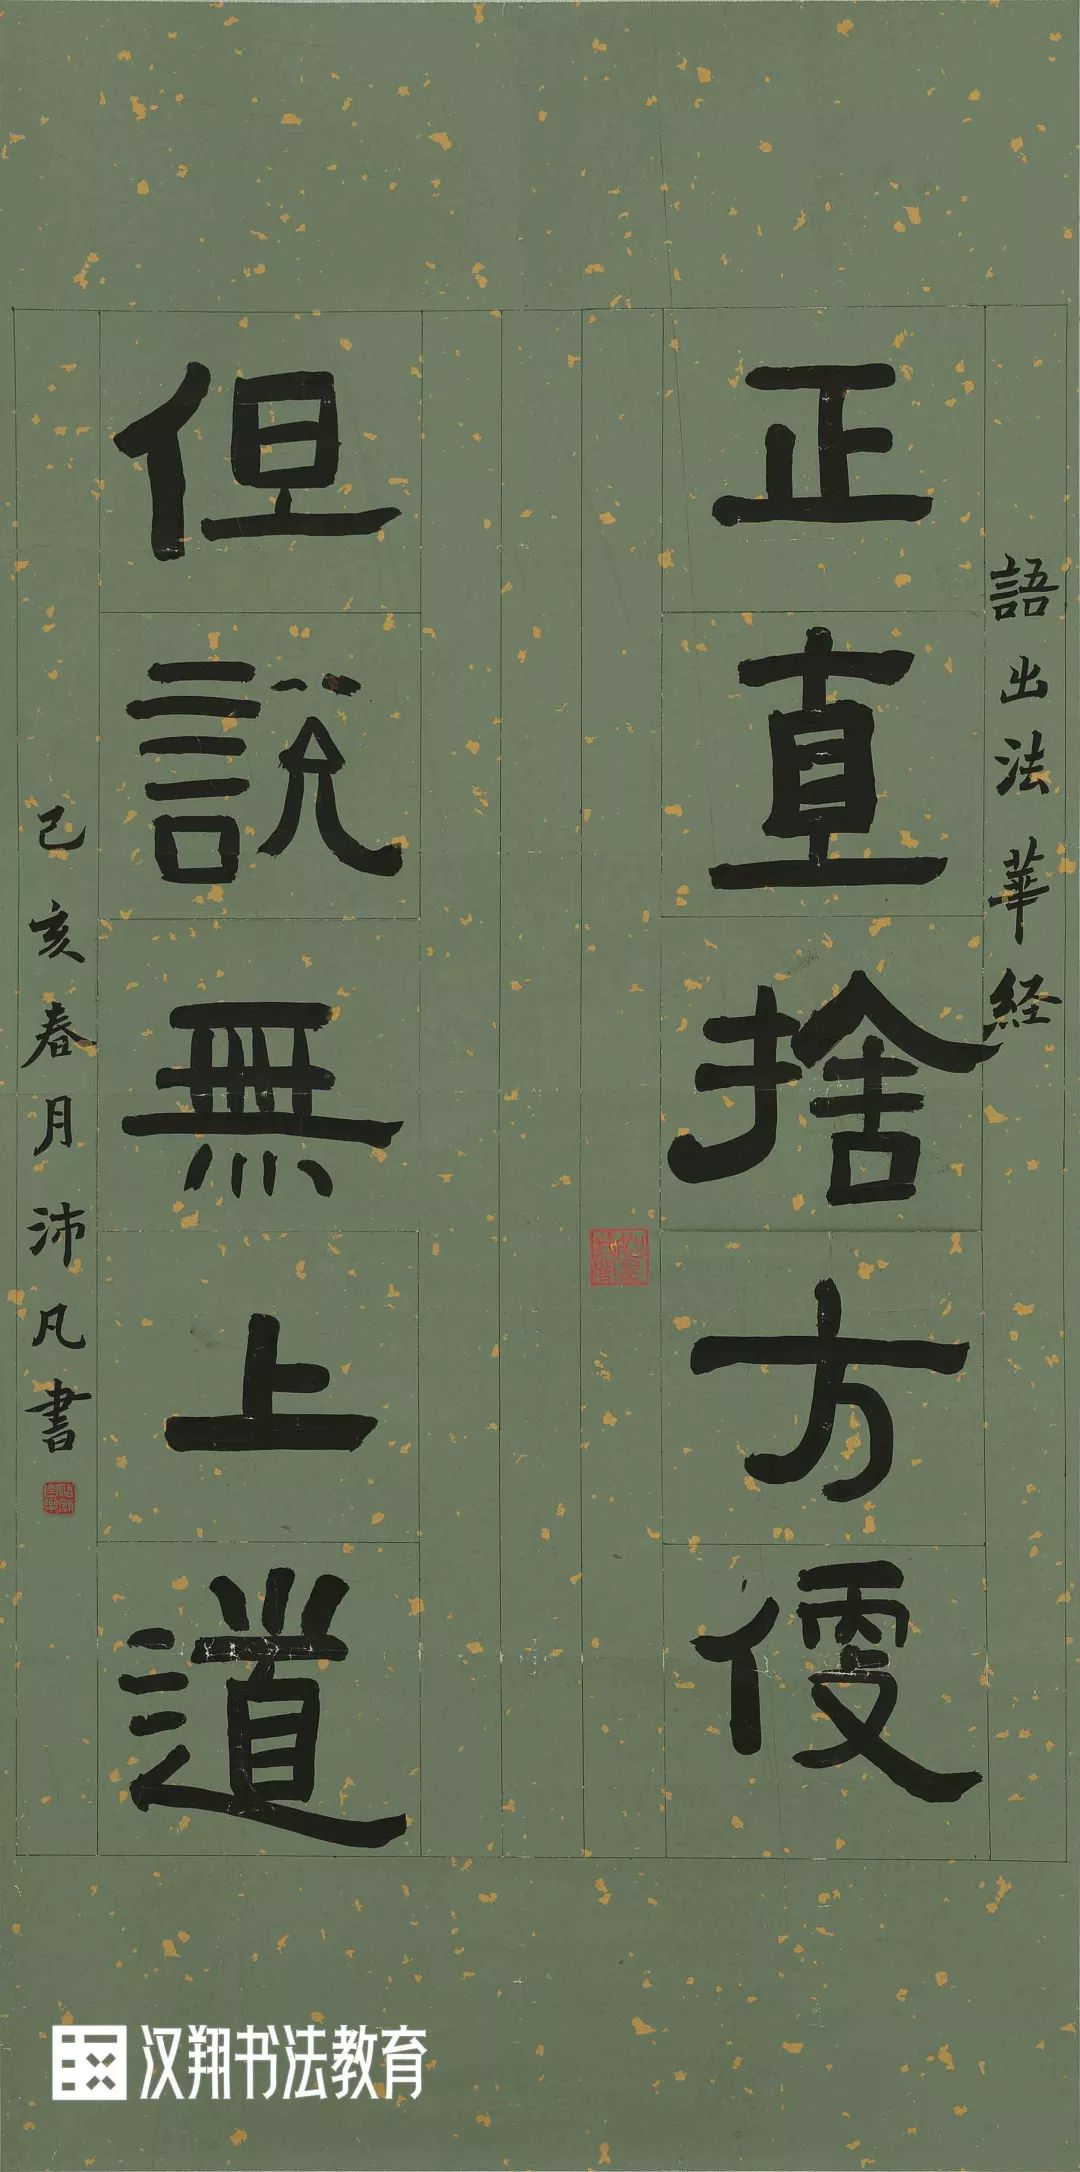 語出法華経
正直捨方便
但說無上道
己亥春月沛凡書
汉翔书法教育